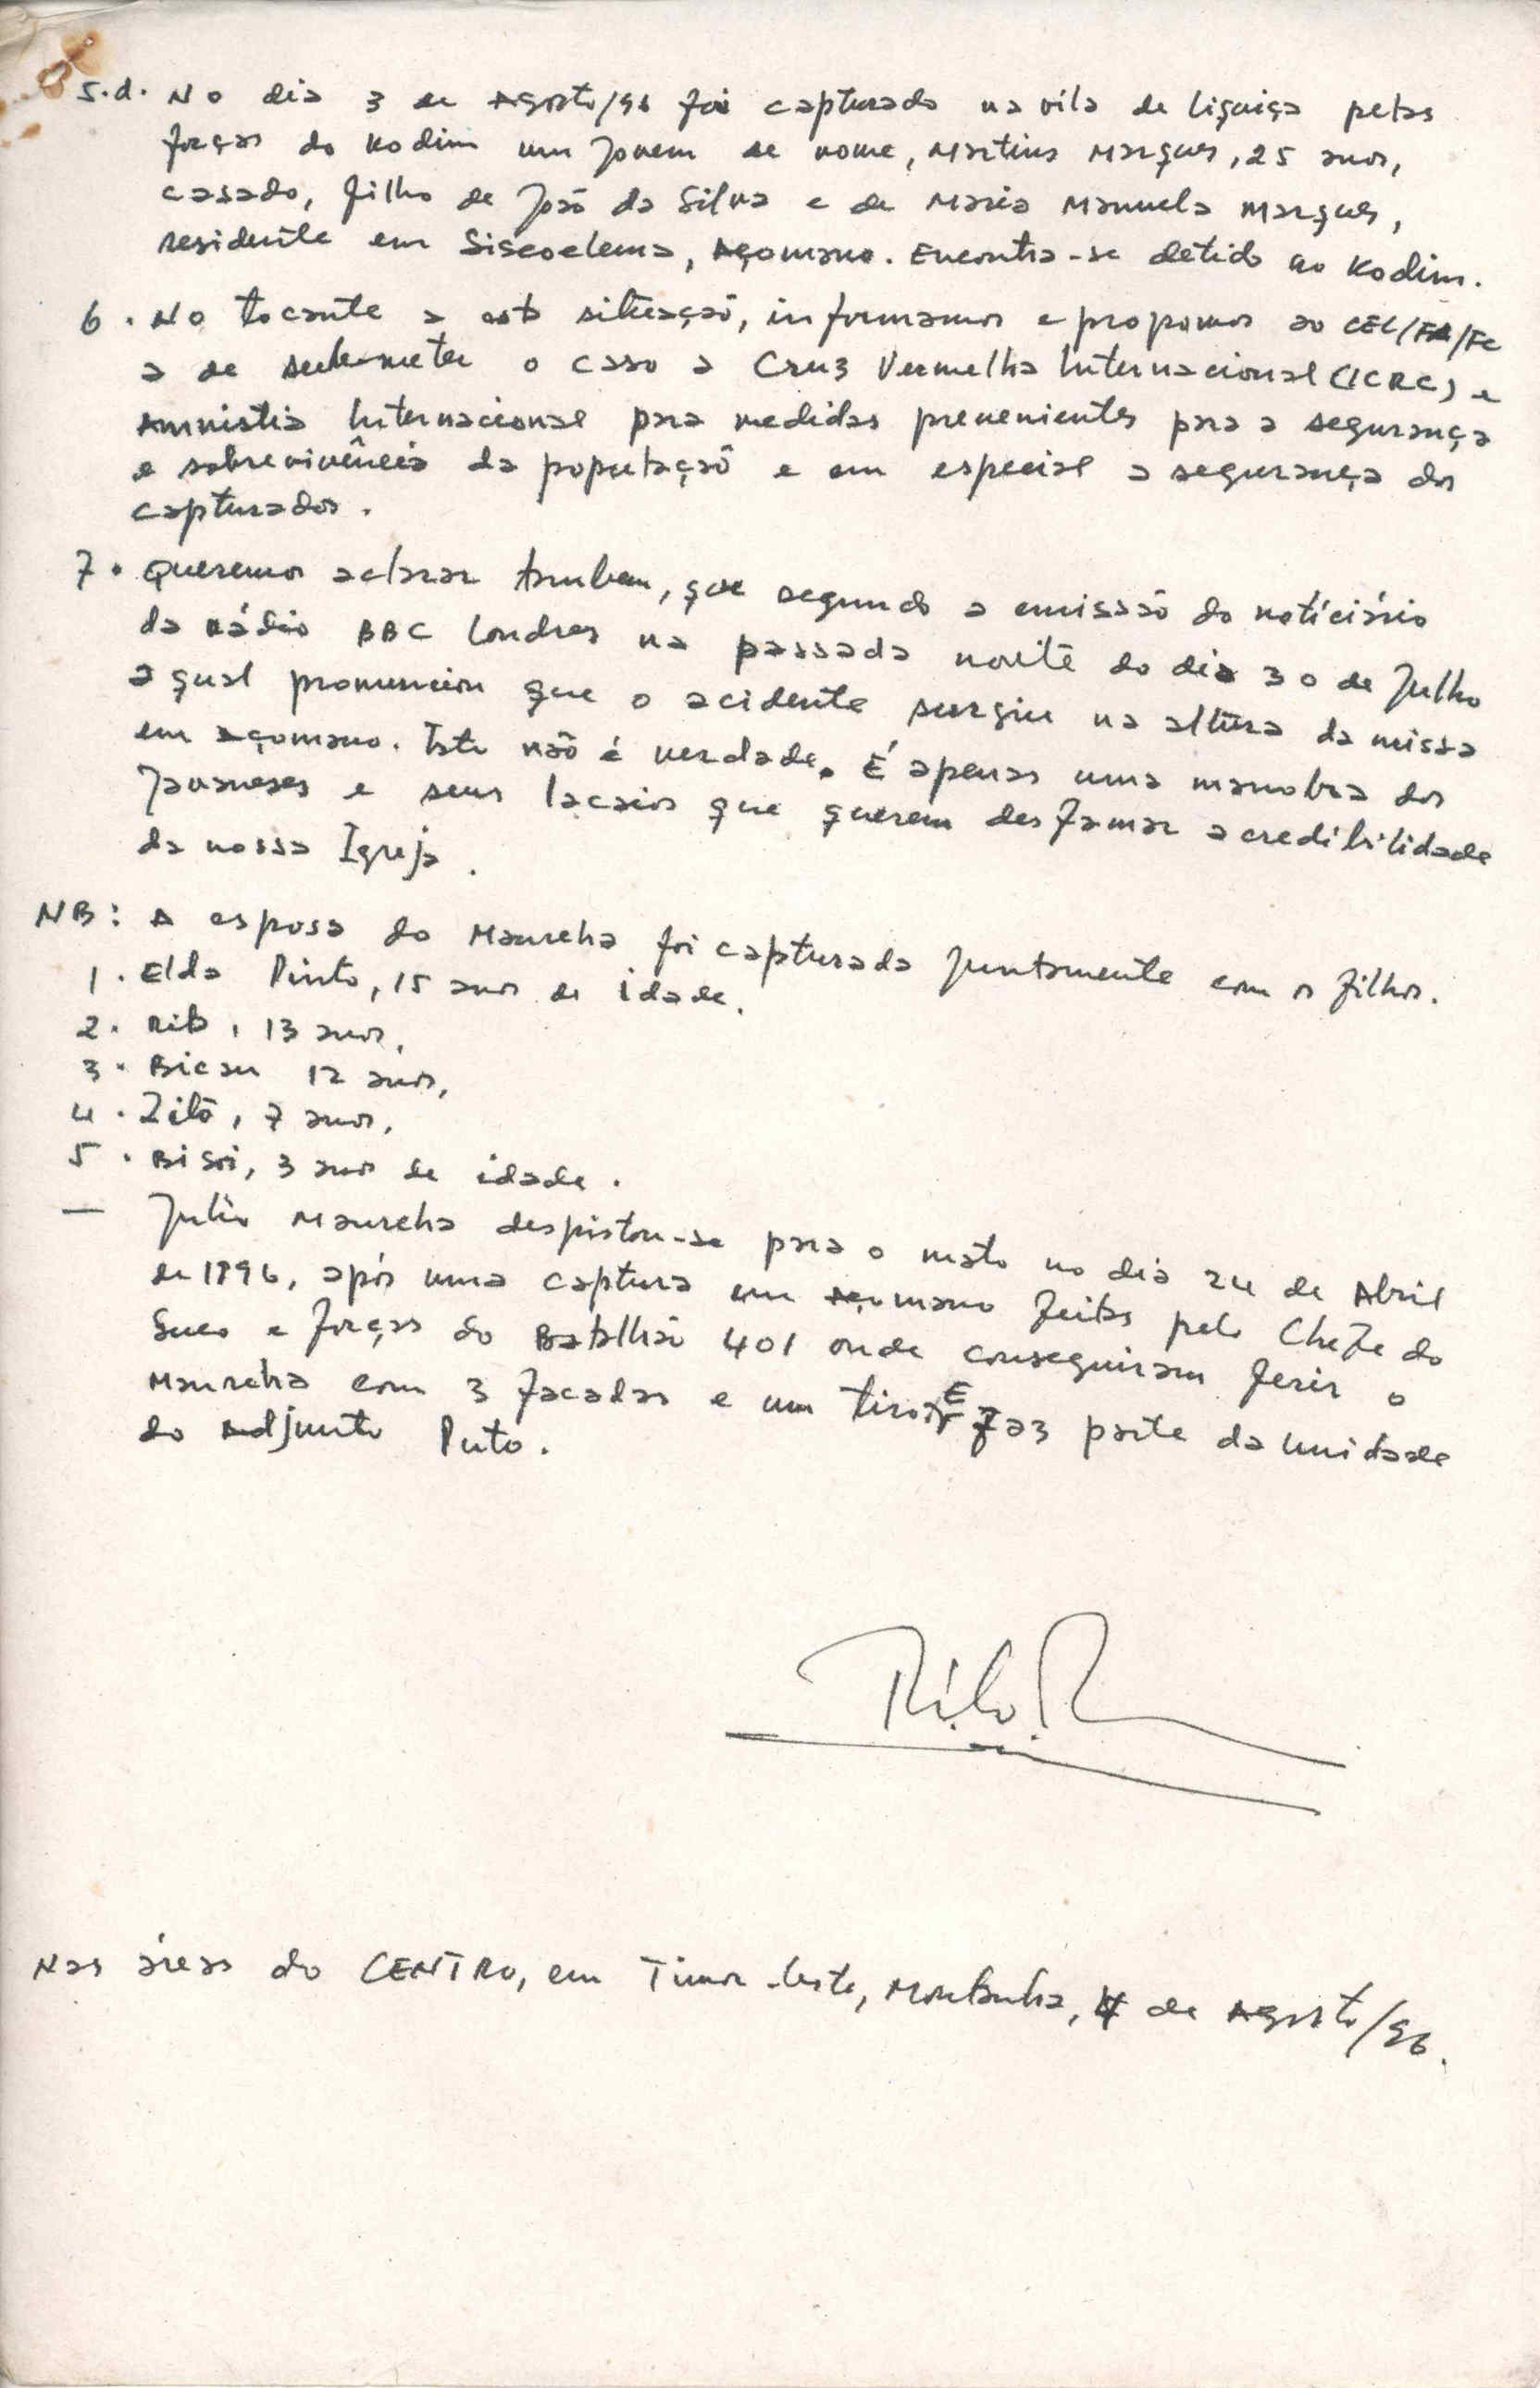 5.d. No dia 3 de Agosto/96 foi capturado na vila de Liquiça pelas
forças do Kodim um Jovem de nome, Martins Marques, 25 anos,
casado, filho de João da Silva e de Maria Manuela Marques,
residente em Siscoelema, Açomano. Encontra-se detido no Kodim.
6. No tocante a esta situação, informamos e propomos ao CEL/FA/FC
a de submeter o caso a Cruz Vermelha Internacional (ICRC) e
Amnistia Internacional para medidas prevenientes para a segurança
e sobrevivência da população e em especial a segurança dos
capturados.
7. Queremos aclarar tambem, que segundo a emissão do notíciário
da Rádio BBC Londres na passada noite do dia 30 de Julho
a qual pronunciou que o acidente surgiu na altura da missa
em Açomano. Isto não é verdade. É apenas uma manobra dos
Javaneses e seus lacaios que querem desfamar a credibilidade
da nossa Igreja.
NB: A esposa do Maureha foi capturada Juntamente com os filhos.
1. Elda Pinto, 15 anos de idade.
2. Rita, 13 anos,
3. Bicau 12 anos,
4. Zito, 7 anos,
5. Bisoi, 3 anos de idade.
— Julio Maureha despistou-se para o mato no dia 24 de Abril
de 1996, após uma captura em Açomano feitas pelo Chefe do
Suco e forças do Batalhão 401 onde conseguiram ferir o
Maureha com 3 facadas e um tiro. E faz parte da Unidade
do Adjunto Puto.
Nas áreas do CENTRO, em Timor-Leste, Montanha, 4 de Agosto/96.